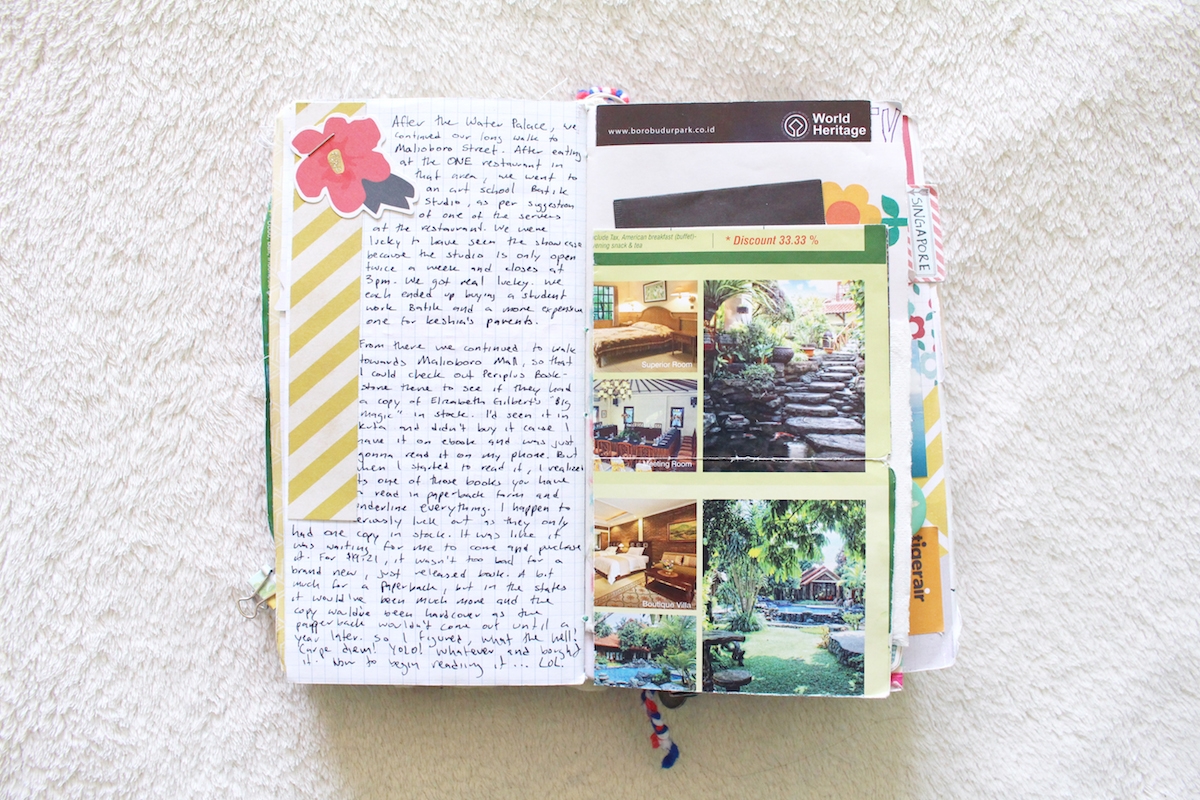 After the Water Palace, we
continued our long walk to
Malioboro Street. After eating
at the ONE restaurant in
that area, we went to
an art school Batik
Studio, as per suggestion
of one of the servers
at the restaurant. We were
lucky to have seen the showcase
because the studio is only open
twice a week and closes at
3pm. We got real lucky. We
each ended up buying a student
work Batik and a more expensive
one for Keshia's parents.
From there we continued to walk
towards Malioboro Mall, so that
I could check out Periplus Book-
store there to see if they had
a copy of Elizabeth Gilbert's "Big
Magic" in stock. I'd seen it in
Kuta and didn't buy it cause I
have it on ebook and was just
gonna read it on my phone. But
when I started to read it, I realized
its one of those books you have
to read in paperback form and
underline everything. I happen to
seriously luck out as they only
had one copy in stock. It was like it
was waiting for me to come and purchase
it. For $19.21, it wasn't too bad for a
brand new, just released book. A bit
much for a paperback, but in the states
it would've been much more and the
copy would've been hardcover as the
paperback wouldn't come out until a
year later. So I figured, what the hell!
Carpe diem! YOLO! Whatever and bought
it. Now to begin reading it... LOL.
www.borobudurpark.co.id
World
Heritage
include Tax, American breakfast (buffet)-
evening snack & tea
* Discount 33.33 %
Superior Room
Meeting Room
Boutique Villa
SINGAPORE
tigerair